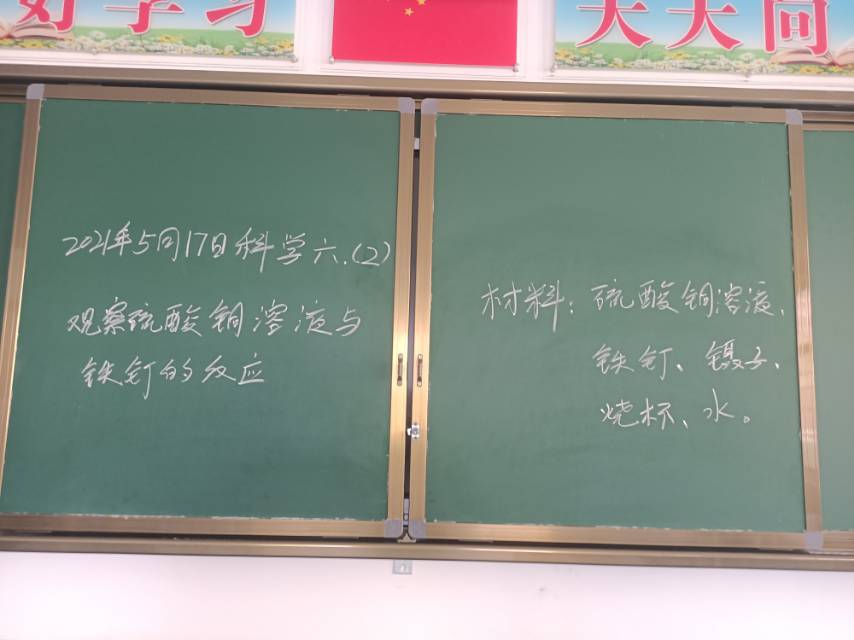 好学习
天天向
2021年5月17日科学六.(2)
观察硫酸铜溶液与
铁钉的反应
材料：硫酸铜溶液、
铁钉、镊子、
烧杯、水。